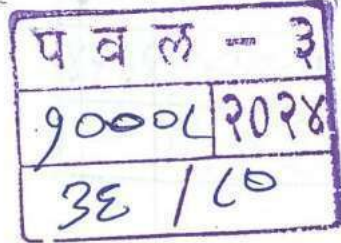 प व ल - ३
१०००८ २०२४
३६ / ८०